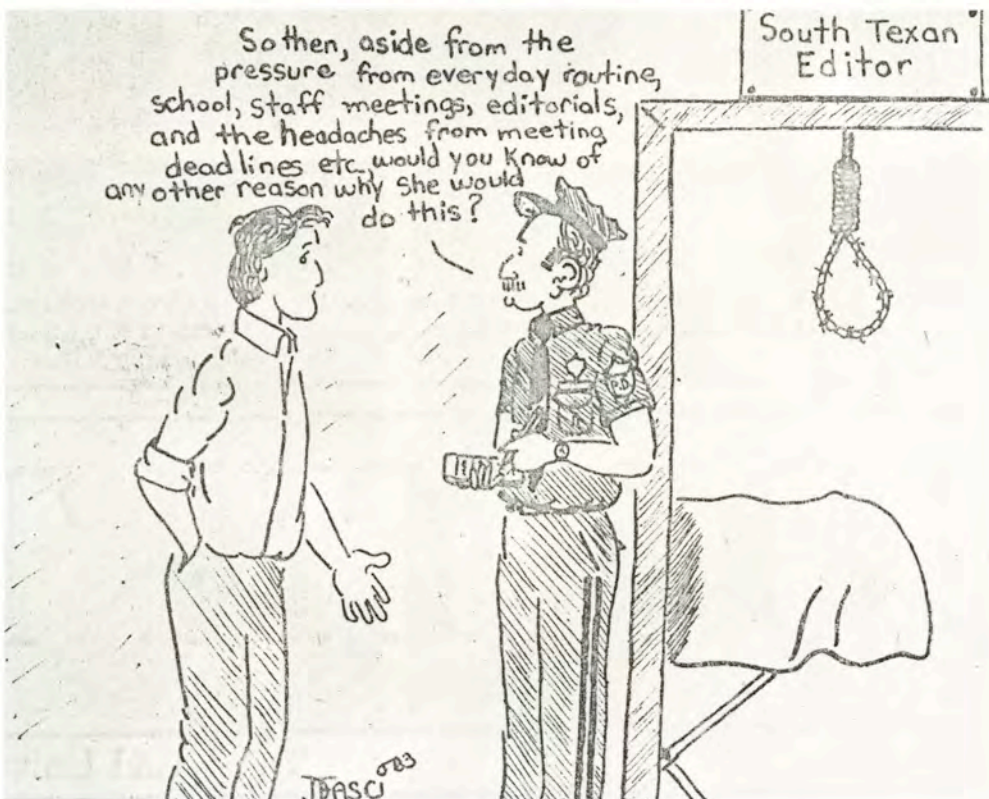 So then, aside from the
pressure from everyday routine,
school, staff meetings, editorials,
and the headaches from meeting
deadlines etc, would you know of
any other reason why she would
do this?
South Texan
Editor
P.D.